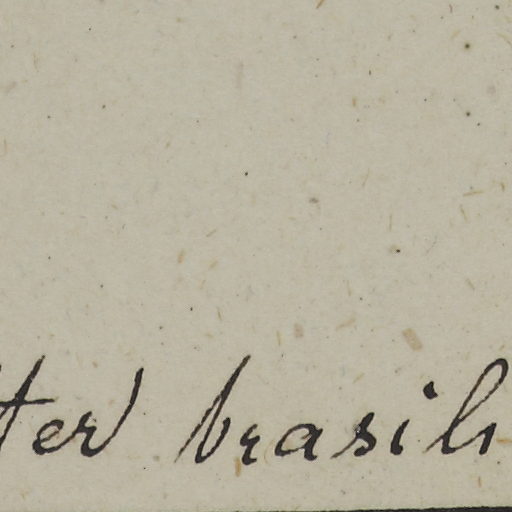 ter brasili